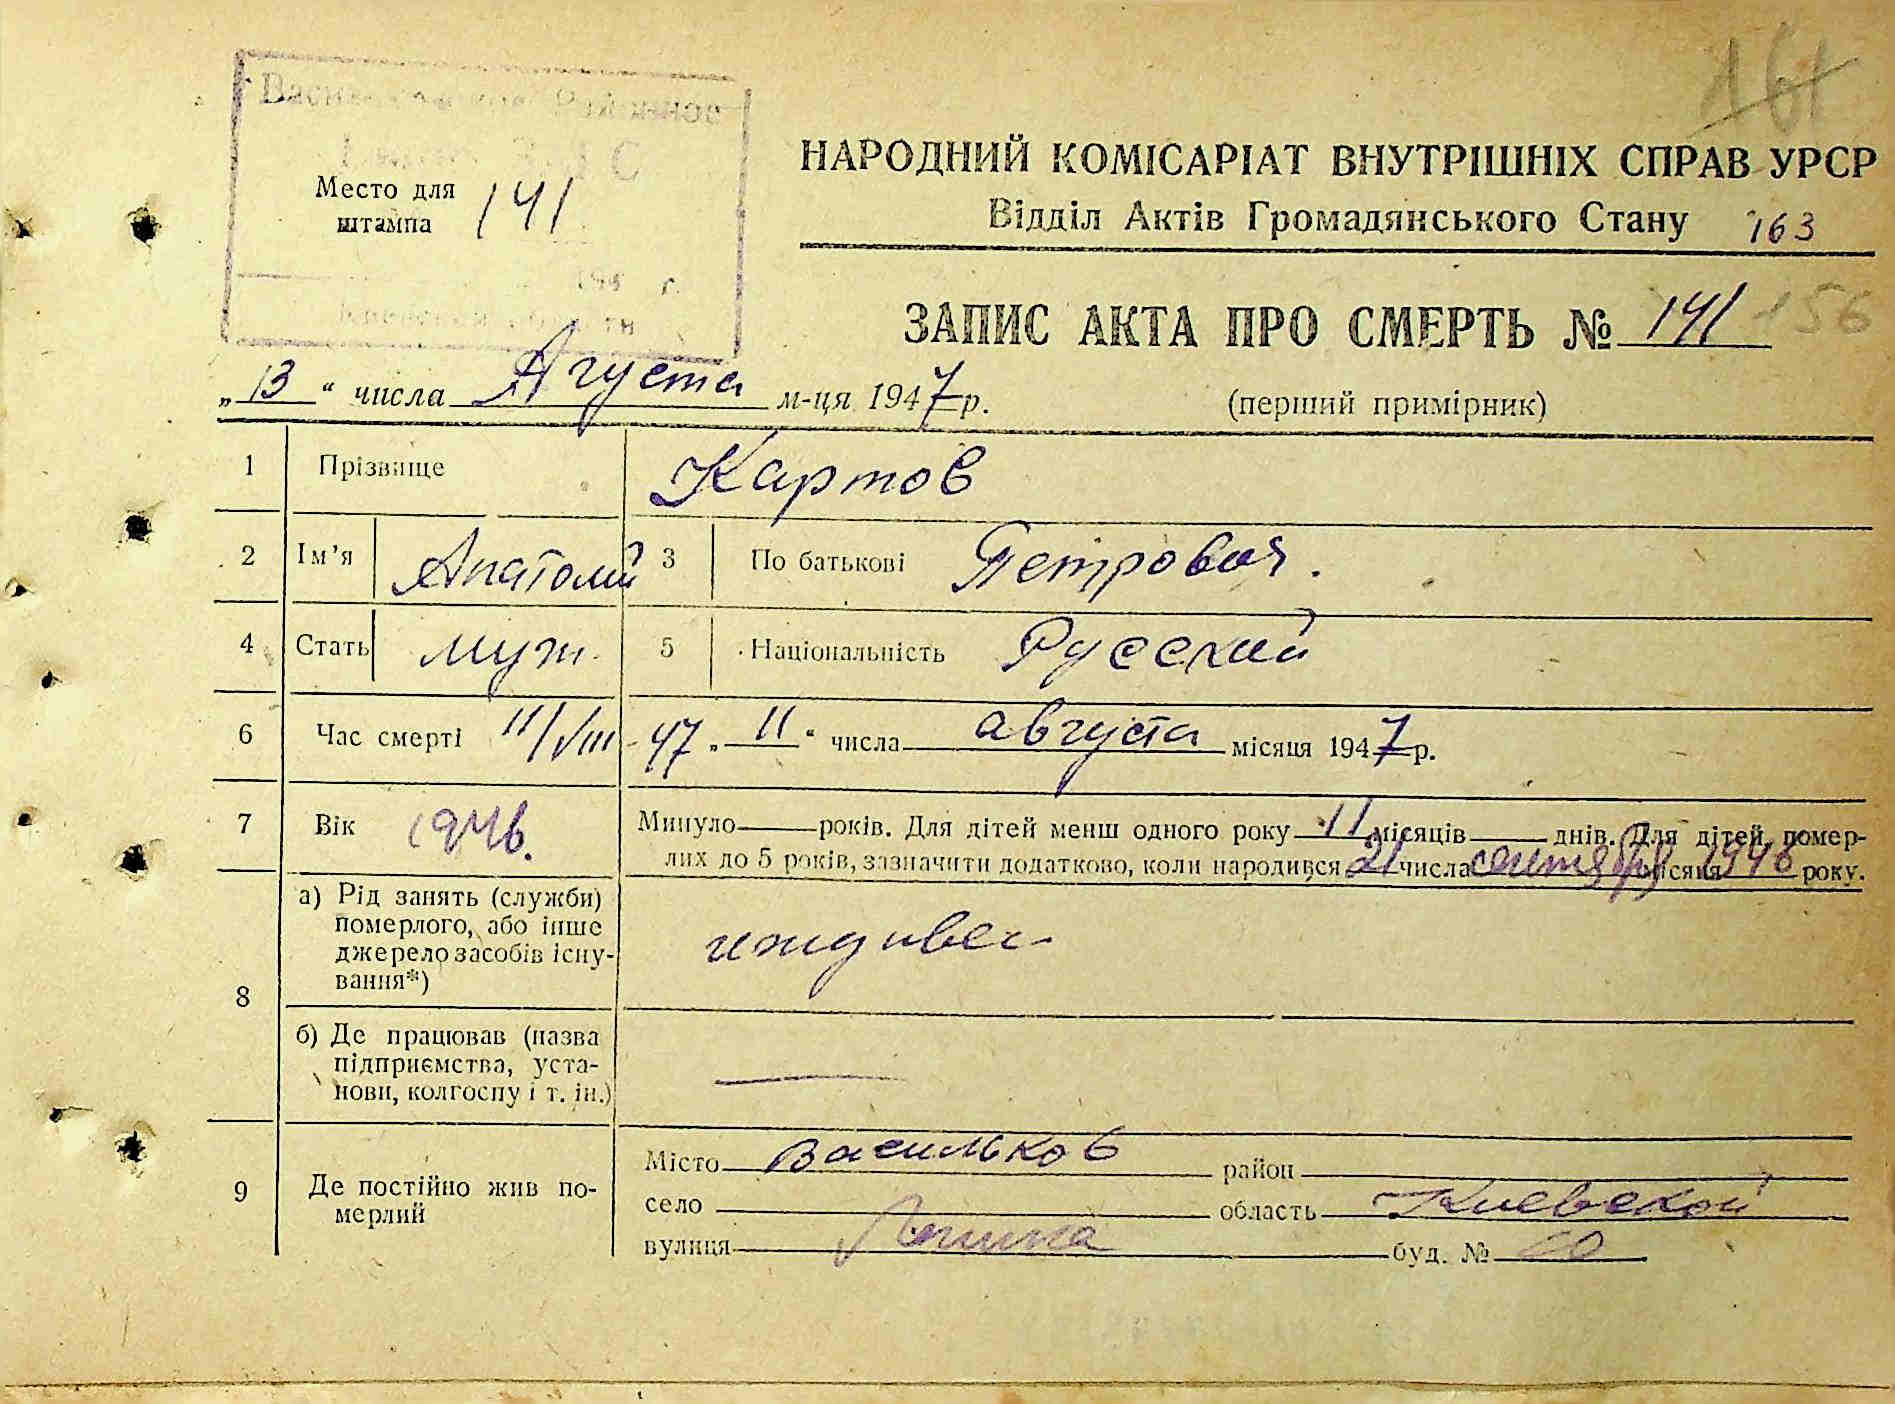 161
НАРОДНИЙ КОМІСАРІАТ ВНУТРІШНІХ СПРАВ УРСР
Відділ Актів Громадянського Стану 163
Место для
штампа 141
194 г.
ЗАПИС АКТА ПРО СМЕРТЬ № 141 156
„13" числа Августа м-ця 1947 р. (перший примірник)
1 Прізвище Картов
2 Ім'я Анатолий 3 По батькові Петрович.
4 Стать муж. 5 Національність Русский
6 Час смерті 11/VIII-47 „11" числа августа місяця 1947 р.
7 Вік 1946. Минуло — років. Для дітей менш одного року 11 місяців — днів. Для дітей, помер-
лих до 5 років, зазначити додатково, коли народився 21 числа сентября місяця 1946 року.
8 а) Рід занять (служби)
померлого, або інше
джерело засобів існу-
вання*) иждивен
б) Де працював (назва
підприємства, уста-
нови, колгоспу і т. ін.) —
9 Де постійно жив по-
мерлий
Місто Васильков район
село область Киевской
вулиця Ленина буд. №